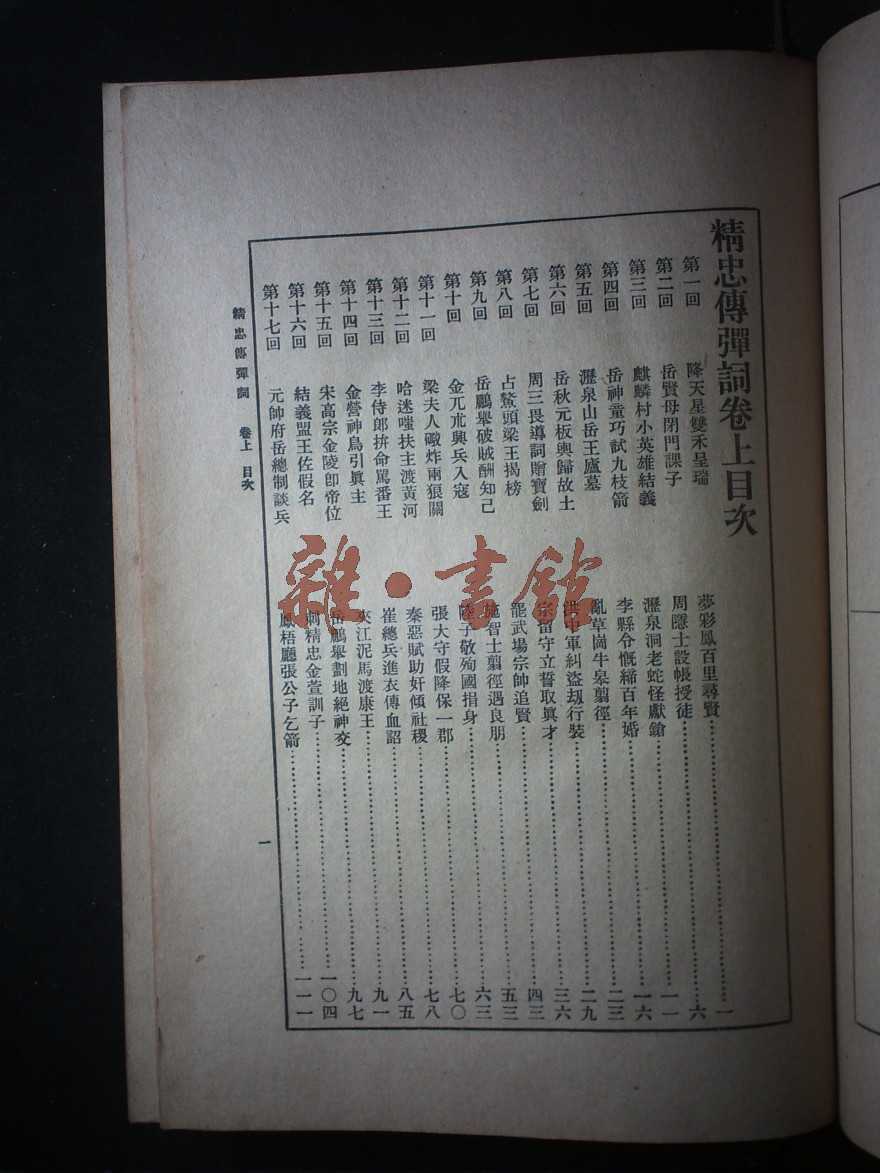 精忠傳彈詞卷上目次
第一回 降天星雙禾呈瑞 夢彩鳳百里尋賢 一
第二回 岳賢母閉門課子 周隱士設帳授徒 六
第三回 麒麟村小英雄結義 瀝泉洞老蛇怪獻鎗 一一
第四回 岳神童巧試九枝箭 李縣令慨締百年婚 一六
第五回 瀝泉山岳王廬墓 亂草崗牛皋翦徑 二三
第六回 岳秋元板輿歸故土 洪中軍糾盜刼行裝 二九
第七回 周三畏導詞贈寶劍 宗留守立誓取眞才 三六
第八回 占鰲頭梁王揭榜 罷武場宗帥追賢 四三
第九回 岳鵬舉破賊酬知己 施智士翦徑遇良朋 五三
第十回 金兀朮興兵入寇 陸子敬殉國捐身 六三
第十一回 梁夫人礮炸兩狼關 張大守假降保一郡 七〇
第十二回 哈迷嗤扶主渡黃河 秦惡賦助奸傾社稷 七八
第十三回 李侍郎拚命駡番王 崔總兵進衣傳血詔 八五
第十四回 金營神鳥引眞主 夾江泥馬渡康王 九一
第十五回 宋高宗金陵卽帝位 岳鵬舉劃地絕神交 九七
第十六回 結義盟王佐假名 刺精忠金萱訓子 一〇四
第十七回 元帥府岳總制談兵 鳳梧廳張公子乞箭 一一一
精忠傳彈詞 卷上 目次
一
雜·書館